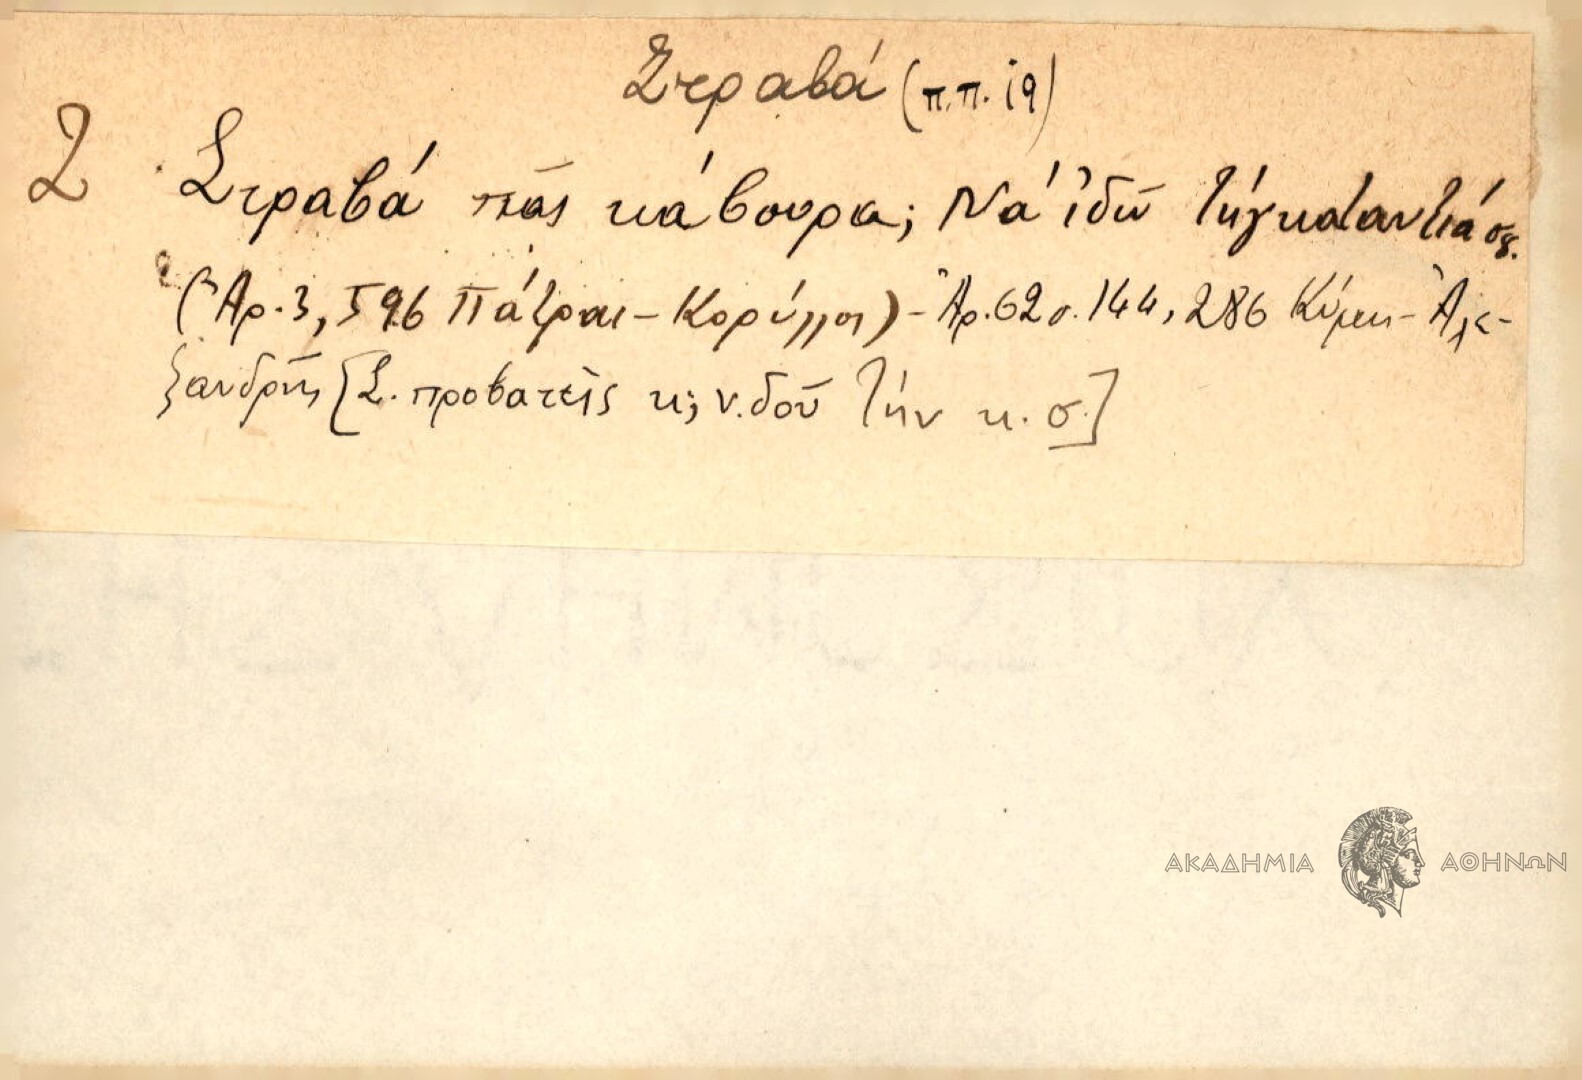 Στραβά (π.π. 19)
2 Στραβά πᾶς κάβουρα; Νά ἰδῶ τήγκαταντιά σου.
(Ἀρ. 3, 596 Πάτραι - Κορύλλος) - Ἀρ. 62 σ. 144, 286 Κύμη - Ἀλε-
ξανδρῆς [Σ. προβατεῖς κ; ν. δοῦ τήν κ. σ.]
ΑΚΑΔΗΜΙΑ ΑΘΗΝΩΝ